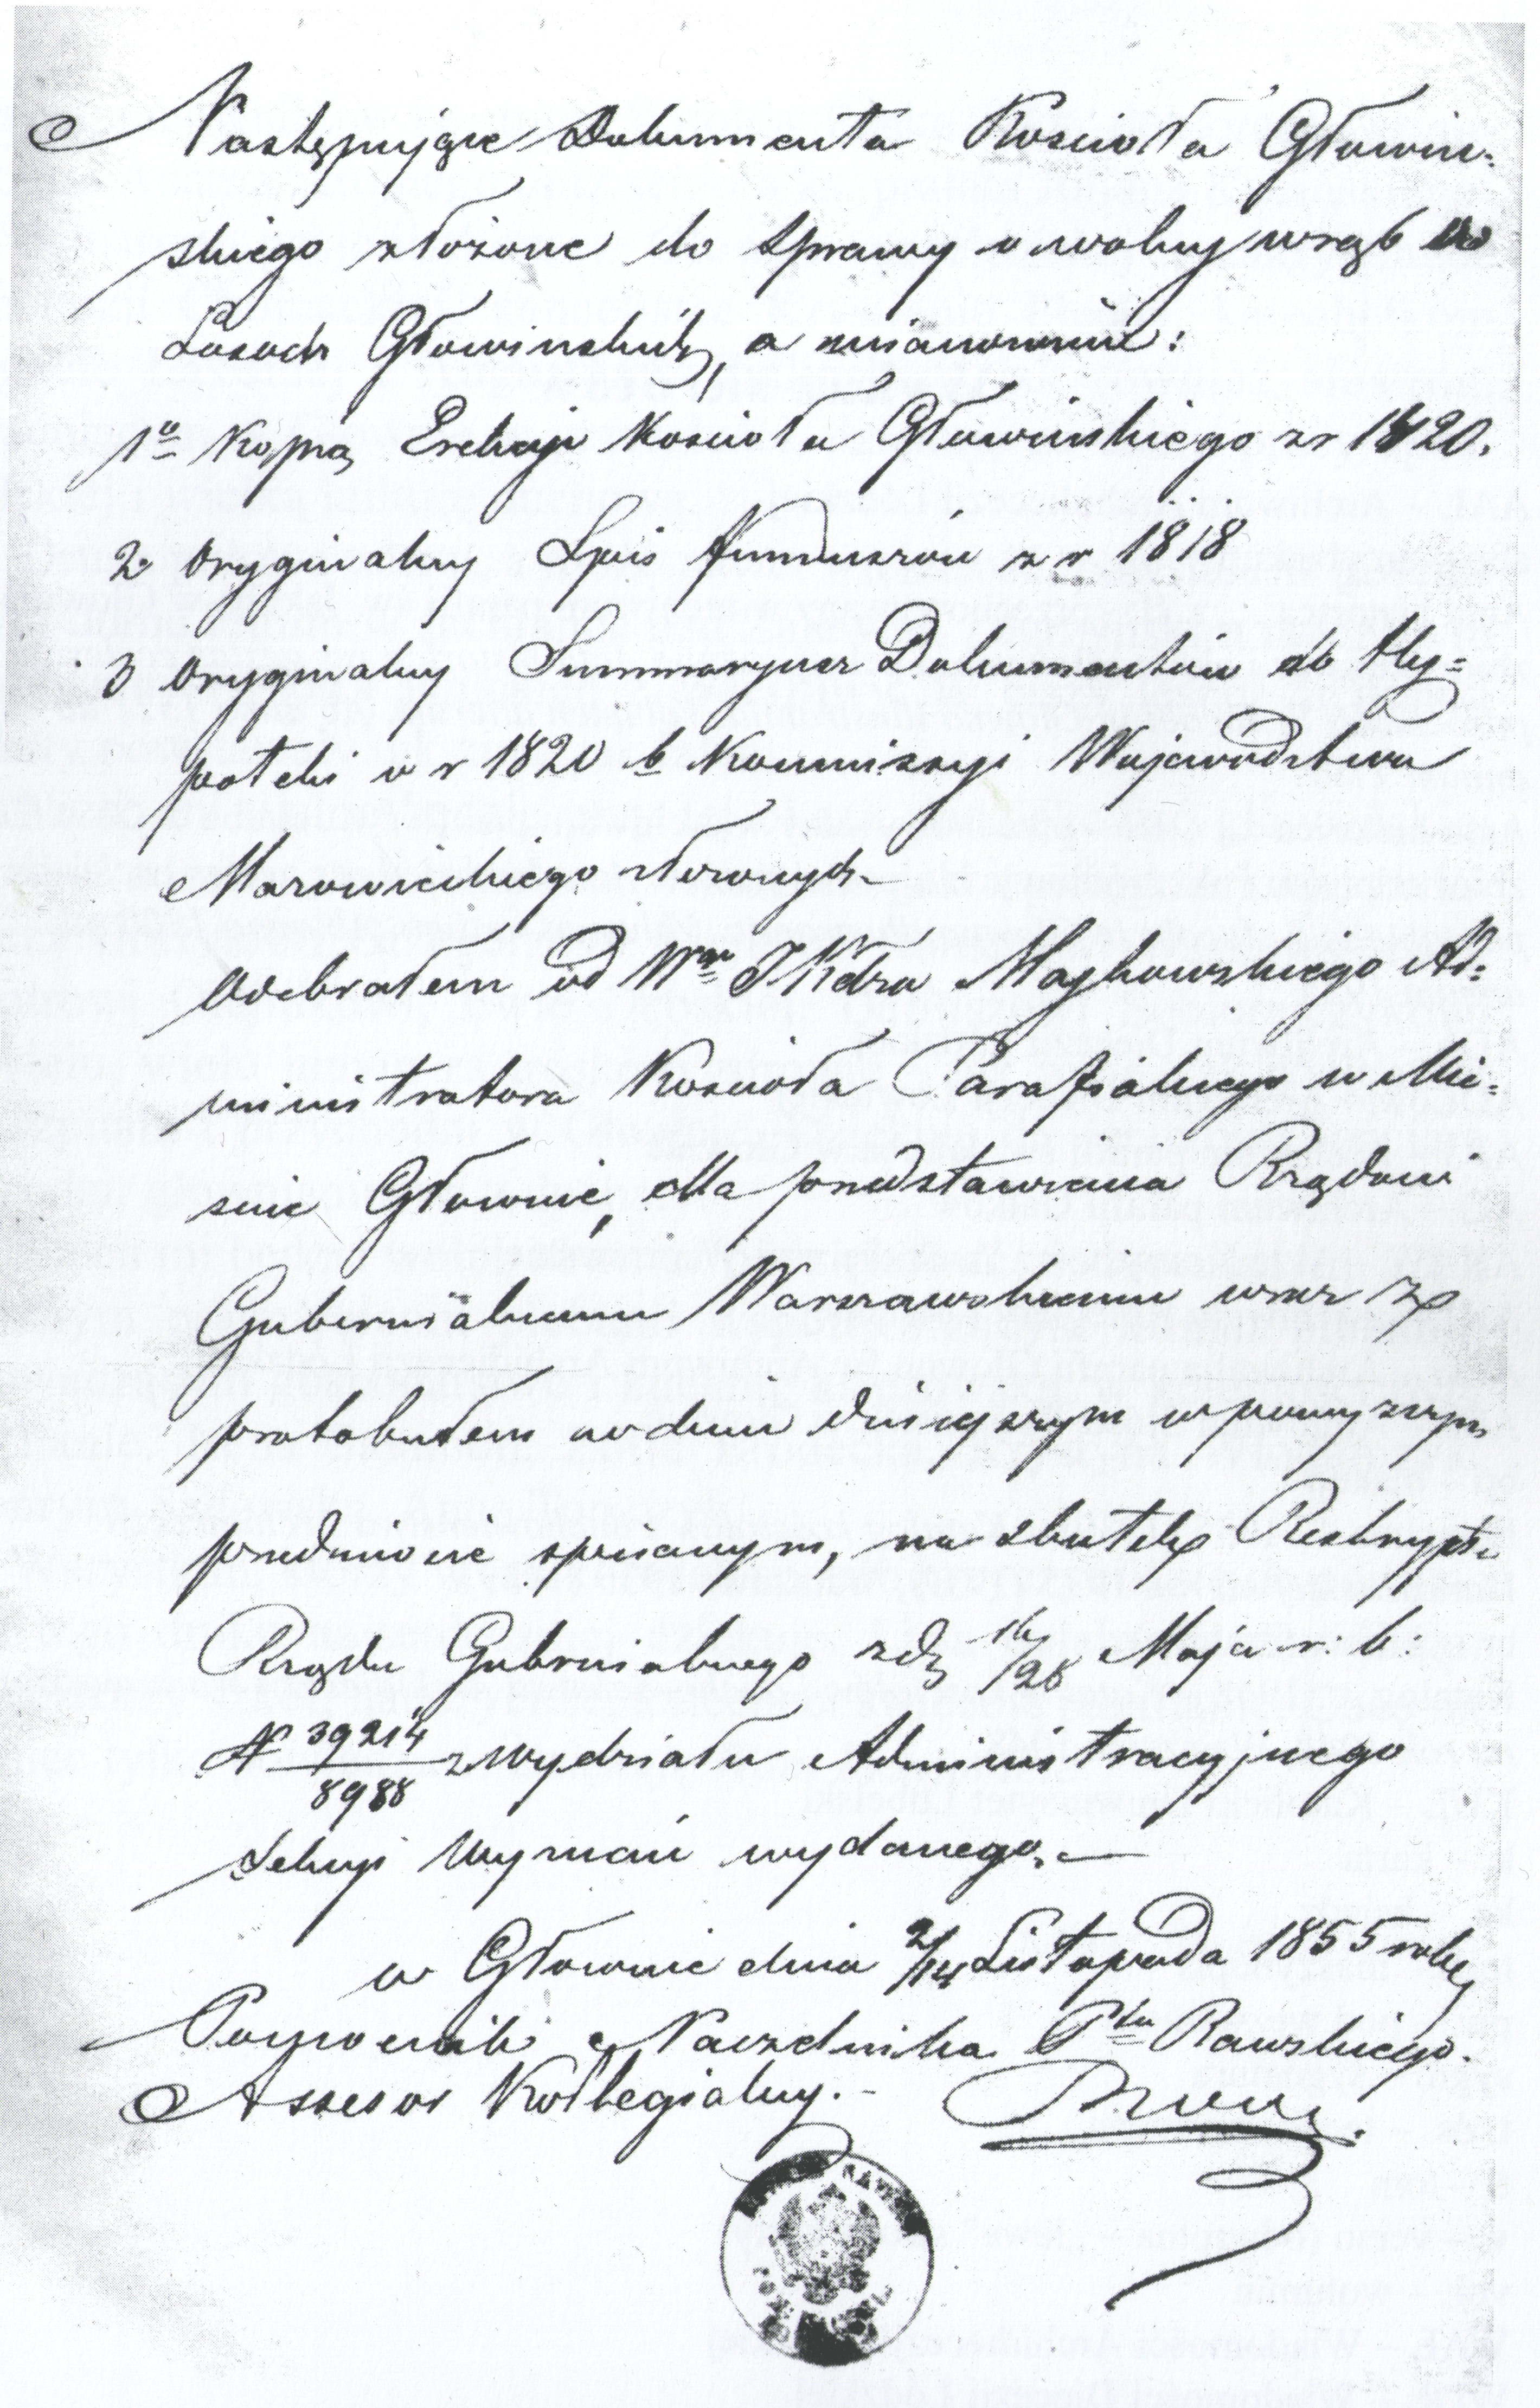 Następujące Dokumenta Kościoła Głowin-
skiego złożone do Sprawy o wolny wrąb w
Lasach Głowinskich, a mianowicie:
1o Kopią Erekcyi Kościoła Głowinskiego z r 1420.
2 Oryginalny Spis funduszów z r 1818
3 Oryginalny Summaryusz Dokumentów do Hy=
poteki w r 1820 b Kommissyi Wojewodztwa
Mazowieckiego złozonych
Odebrałem od Wgo JXdza Maykowskiego Ad=
ministratora Kościoła Parafialnego w Mie-
scie Głownie, dla przedstawienia Rządowi
Gubernialnemu Warszawskiemu wraz z
protokułem w dniu dzisiejszym w powyzszym
przedmiocie spisanym, na skutek Reskryptu
Rządu Gubernialnego z d 16/28 Maja r: b:
N 39214/8988 z Wydziału Administracyjnego
Sekcyi Wyznań wydanego.
w Głownie dnia 2/14 Listopada 1855 roku
Pomocnik Naczelnika Ptu Rawskiego.
Assesor Kollegialny.